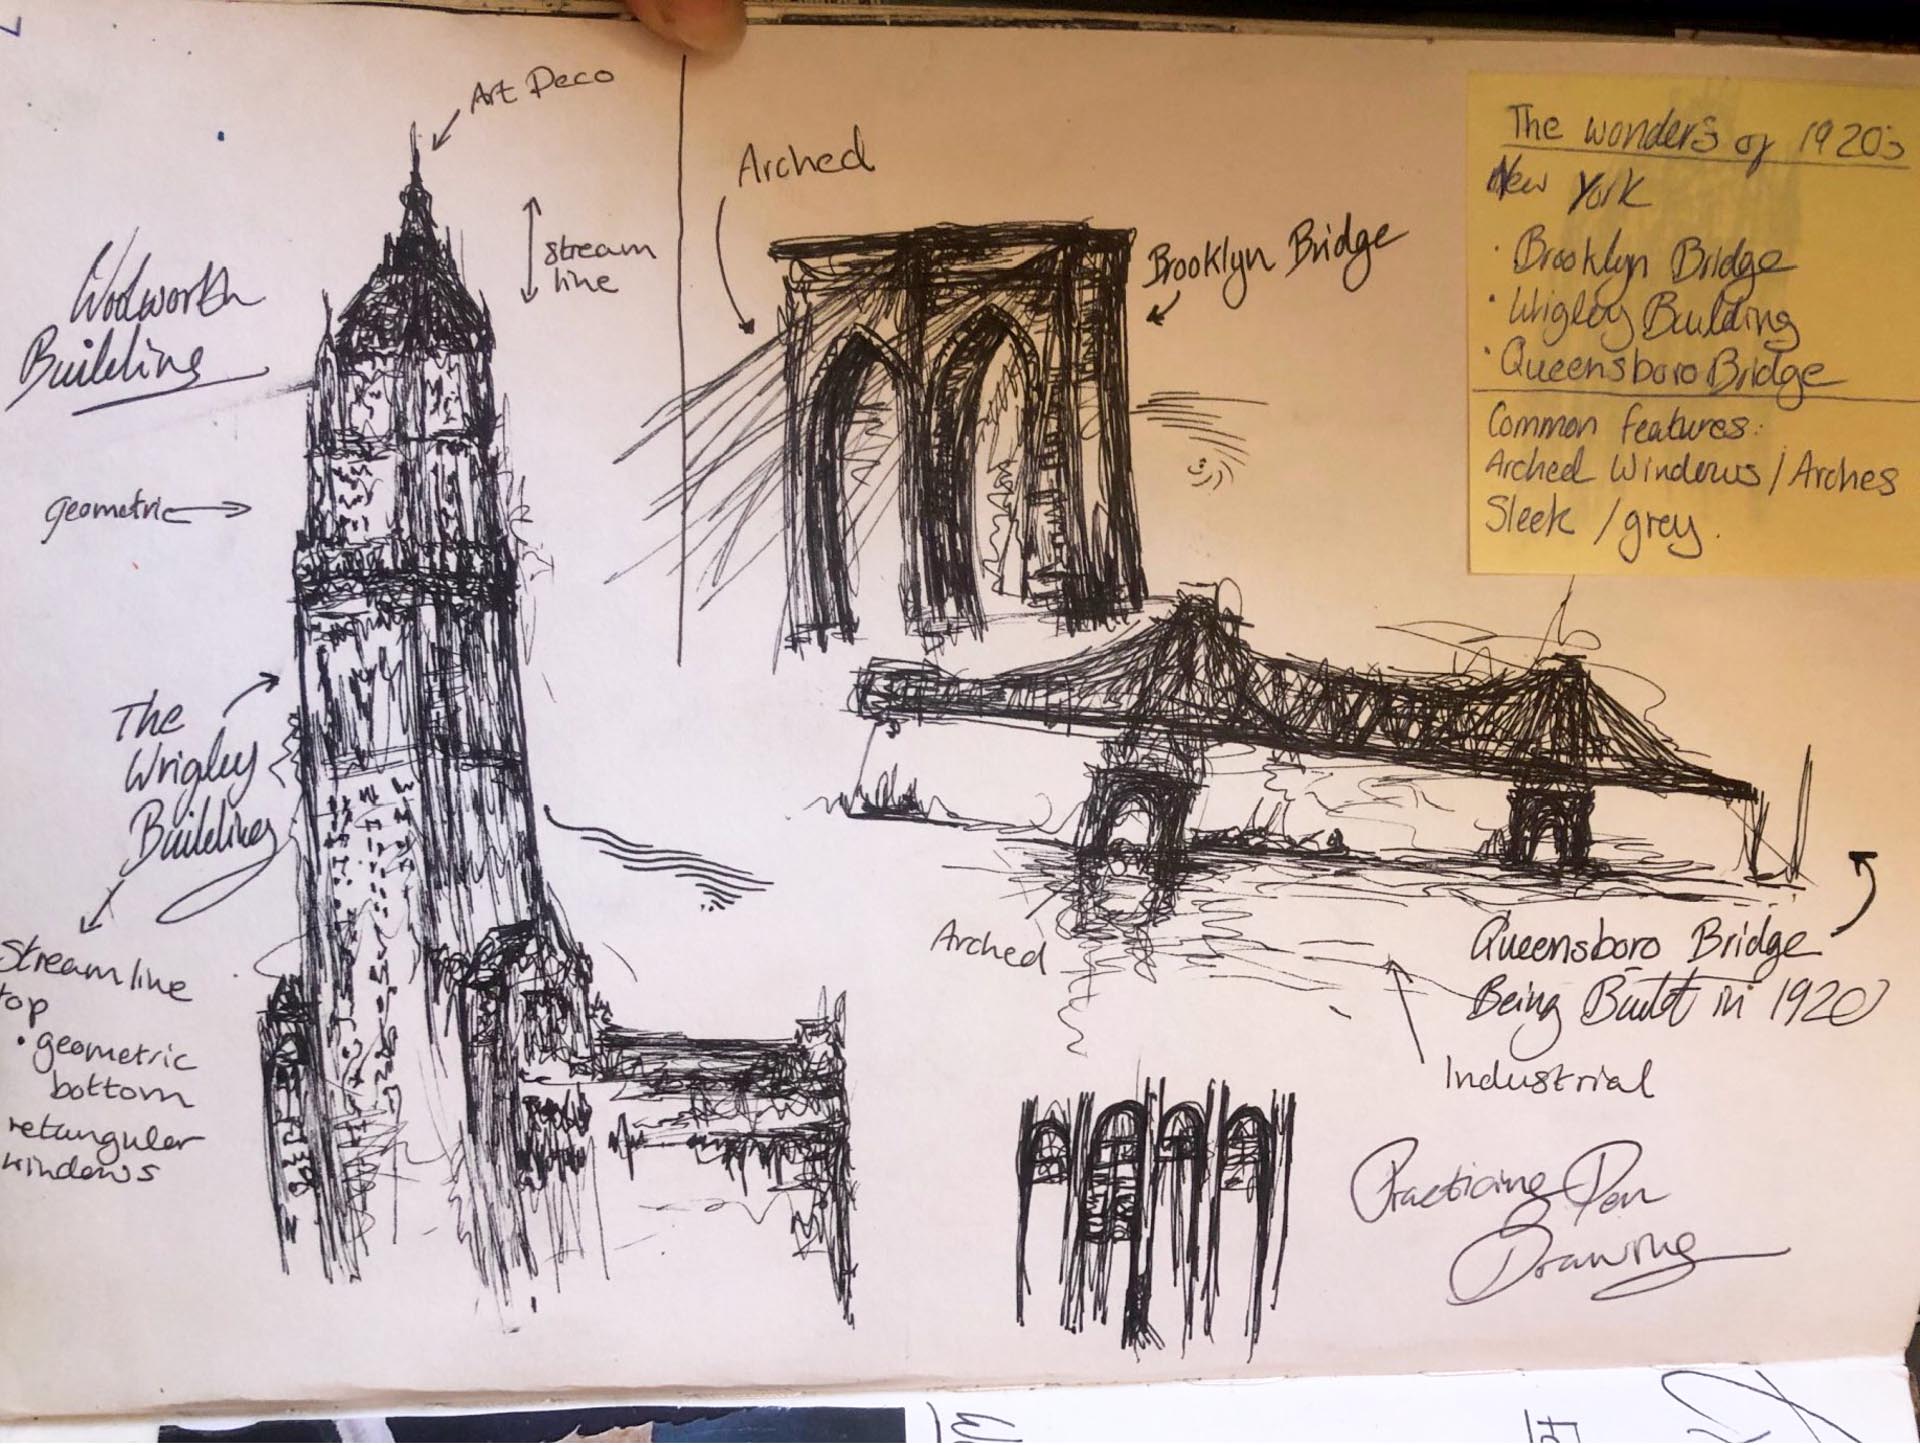 Art Deco
stream
line
Woolworth
Building
geometric
The
Wrigley
Building
Streamline
top
• geometric
bottom
retangular
windows
Arched
Brooklyn Bridge
The wonders of 1920's
New York
• Brooklyn Bridge
• Wrigley Building
• Queensboro Bridge
Common features:
Arched Windows / Arches
Sleek / grey.
Arched
Queensboro Bridge
Being Built in 1920
Industrial
Practicing Pen
Drawing